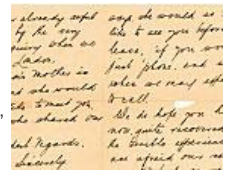 already awful
by the very
when we
London.
his Mother is
and she would
like to meet you,
who shared our
Regards.
Sincerely
say she would so
like to see you before
leave, if you wo
just phone, and s
when we may expe
to call.
We do hope you h
now quite recovered
the terrible experience
are afraid our na